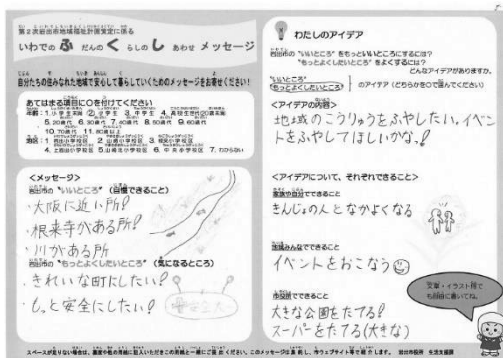 第2次岩出市地域福祉計画策定に係る
いわでの ふ だんの く らしの し あわせ メッセージ
自分たちの住みなれた地域で安心して暮らしていくためのメッセージをお寄せください！
あてはまる項目に○を付けてください
年齢：1. 小学生 2. 小学生 3. 中学生 4. 高校生世代(20歳未満)
5. 20歳代 6. 30歳代 7. 40歳代 8. 50歳代 9. 60歳代
10. 70歳代 11. 80歳以上
地区：1. 岩出小学校区 2. 山崎小学校区 3. 根来小学校区
4. 上岩出小学校区 5. 山崎北小学校区 6. 中央小学校区 7. わからない
<メッセージ>
岩出市の "いいところ" (自慢できること)
・大阪に近い所!
・根来寺がある所!
・川がある所
岩出市の "もっとよくしたいところ" (気になるところ)
・きれいな町にしたい!
・もっと安全にしたい!
安全
わたしのアイデア
岩出市の "いいところ" をもっといいところにするには？
"もっとよくしたいところ" をよくするには？
どんなアイデアがありますか。
"いいところ"
"もっとよくしたいところ" のアイデア (どちらかを○で囲んでください)
<アイデアの内容>
地域のこうりゅうをふやしたい。イベン
トをふやしてほしいかな。!
<アイデアについて、それぞれできること>
家族や自分でできること
きんじょの人となかよくなる
地域みんなでできること
イベントをおこなう
市役所でできること
大きな公園をたてる!
スーパーをたてる(大きな)
文章・イラスト何で
も自由に書いてね。
スペースが足りない場合は、裏面や他の用紙に記入いただきこの用紙と一緒にご提出ください。このメッセージは集約し、市ウェブサイト等で紹介します。 岩出市役所 生活支援課